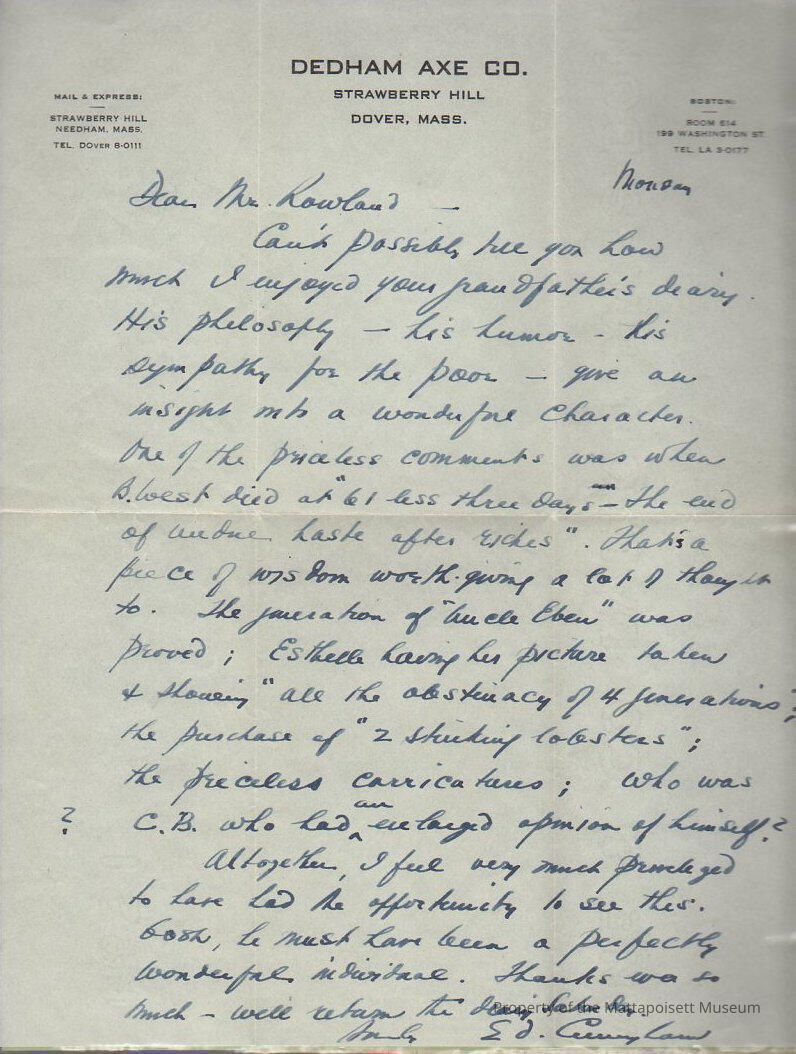 DEDHAM AXE CO.
STRAWBERRY HILL
DOVER, MASS.
MAIL & EXPRESS:
STRAWBERRY HILL
NEEDHAM, MASS.
TEL. DOVER 8-0111
BOSTON:
ROOM 614
199 WASHINGTON ST.
TEL. LA 3-0177
Monday
Dear Mr. Rowland —
Can't possibly tell you how
much I enjoyed your grandfather's diary.
His philosophy — his humor - his
sympathy for the poor — give an
insight into a wonderful character.
One of the priceless comments was when
B. West died at "61 less three days" — the end
of undue haste after riches". That's a
piece of wisdom worth giving a lot of thought
to. The generation of "Uncle Eben" was
proved; Esthelle having her picture taken
& showing "all the obstinacy of 4 generations";
the purchase of "2 stinking lobsters";
the priceless carricatures; who was
? C.B. who had an enlarged opinion of himself?
Altogether, I feel very much privileged
to have had the opportunity to see this.
Gosh, he must have been a perfectly
wonderful individual. Thanks so
much — will return the
Ed.
Property of the Mattapoisett Museum